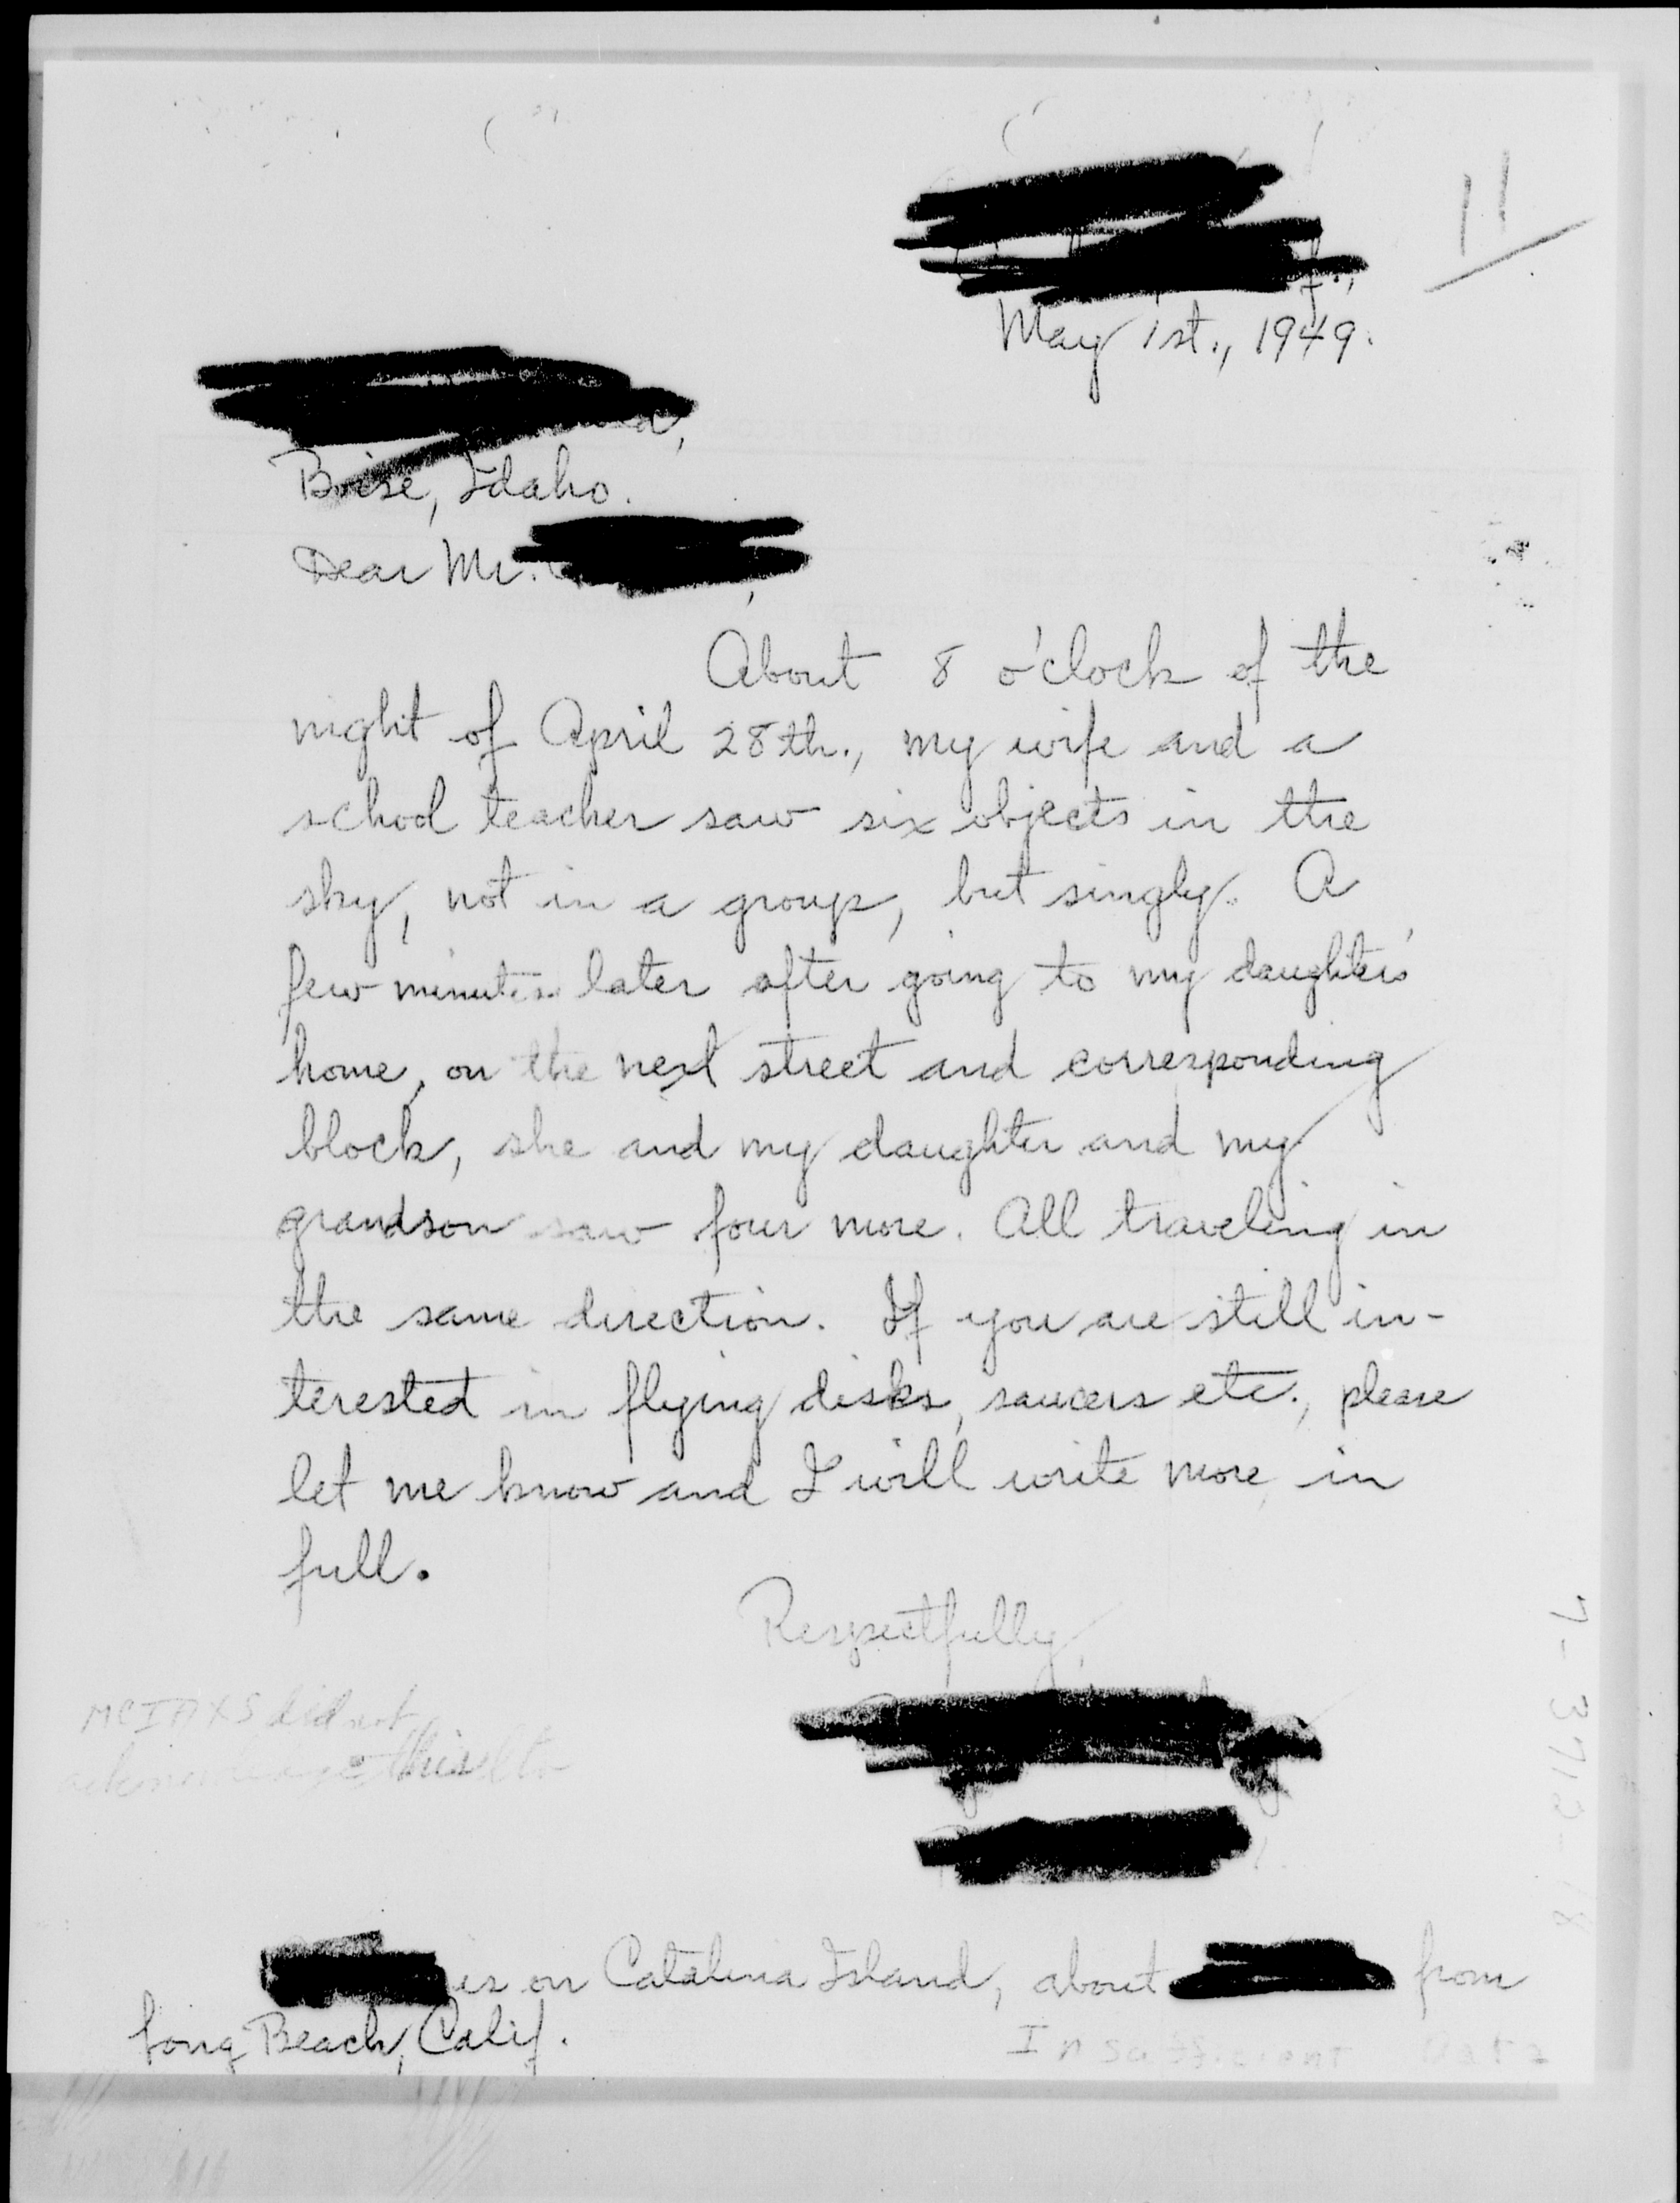 11
May 1st., 1949.
Boise, Idaho.
Dear Mr.
About 8 o'clock of the
night of April 28th., my wife and a
school teacher saw six objects in the
sky, not in a group, but singly. A
few minutes later after going to my daughter's
home, on the next street and corresponding
block, she and my daughter and my
grandson saw four more. All traveling in
the same direction. If you are still in-
terested in flying disks, saucers etc., please
let me know and I will write more in
full.
Respectfully,
MCIAXS did not
acknowledge this ltr
is on Catalina Island, about from
Long Beach, Calif.
Insufficient Data